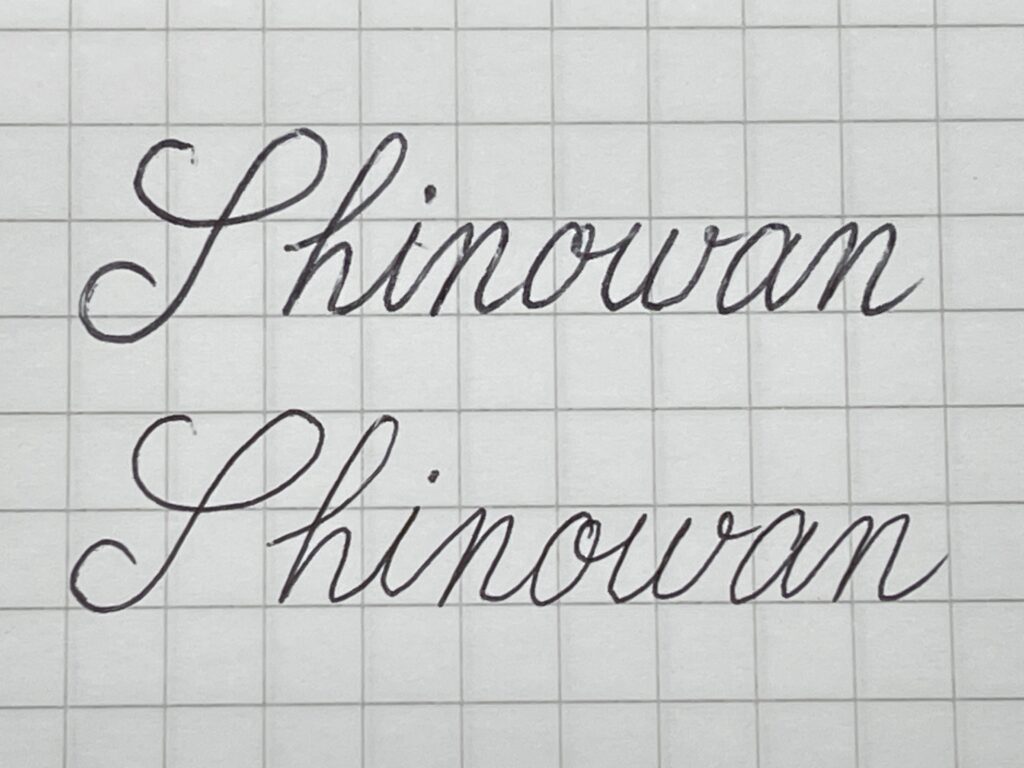 Shinowan
Shinowan